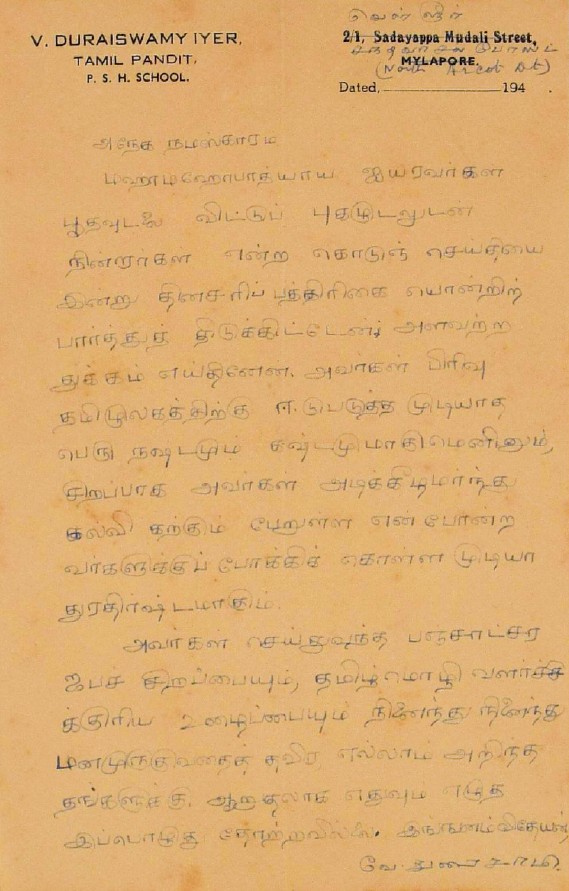 V. DURAISWAMY IYER,
TAMIL PANDIT,
P. S. H. SCHOOL.
2/1, Sadayappa Mudali Street,
MYLAPORE.
(North Arcot Dt)
Dated, 194 .
அநேக நமஸ்காரம
மஹாமஹோபாத்யாய ஐயரவர்கள
பூதவுடலை விட்டுப் புகழுடலுடன்
நின்றார்கள் என்ற கொடுஞ் செய்தியை
இன்று தினசரிப் பத்திரிகை யொன்றிற்
பார்த்துத் திடுக்கிட்டேன்; அளவற்ற
துக்கம் எய்தினேன. அவர்கள் பிரிவு
தமிழுலகத்திற்கு ஈடுபடுத்த முடியாத
பெரு நஷ்டமும் கஷ்டமுமாகுமெனினும்,
சிறப்பாக அவர்கள் அடிக்கீழமர்ந்து
கல்வி கற்கும் பேறுள்ள என் போன்ற
வர்களுக்குப் போக்கிக் கொள்ள முடியா
துரதிர்ஷ்டமாகும்.
அவர்கள செய்துவந்த பஞ்சாட்சர
ஜபச் சிறப்பையும், தமிழ்மொழி வளர்ச்சி
க்குரிய உழைப்பையும் நினைந்து நினைந்து
மனமுருகுவதைத் தவிர, எல்லாம் அறிந்த
தங்களுக்கு. ஆறுதலாக எதுவும் எழுத
இப்பொழுது தோற்றவில்லை. இங்ஙனம் விதேயன்,
வே. துரைசாமி.